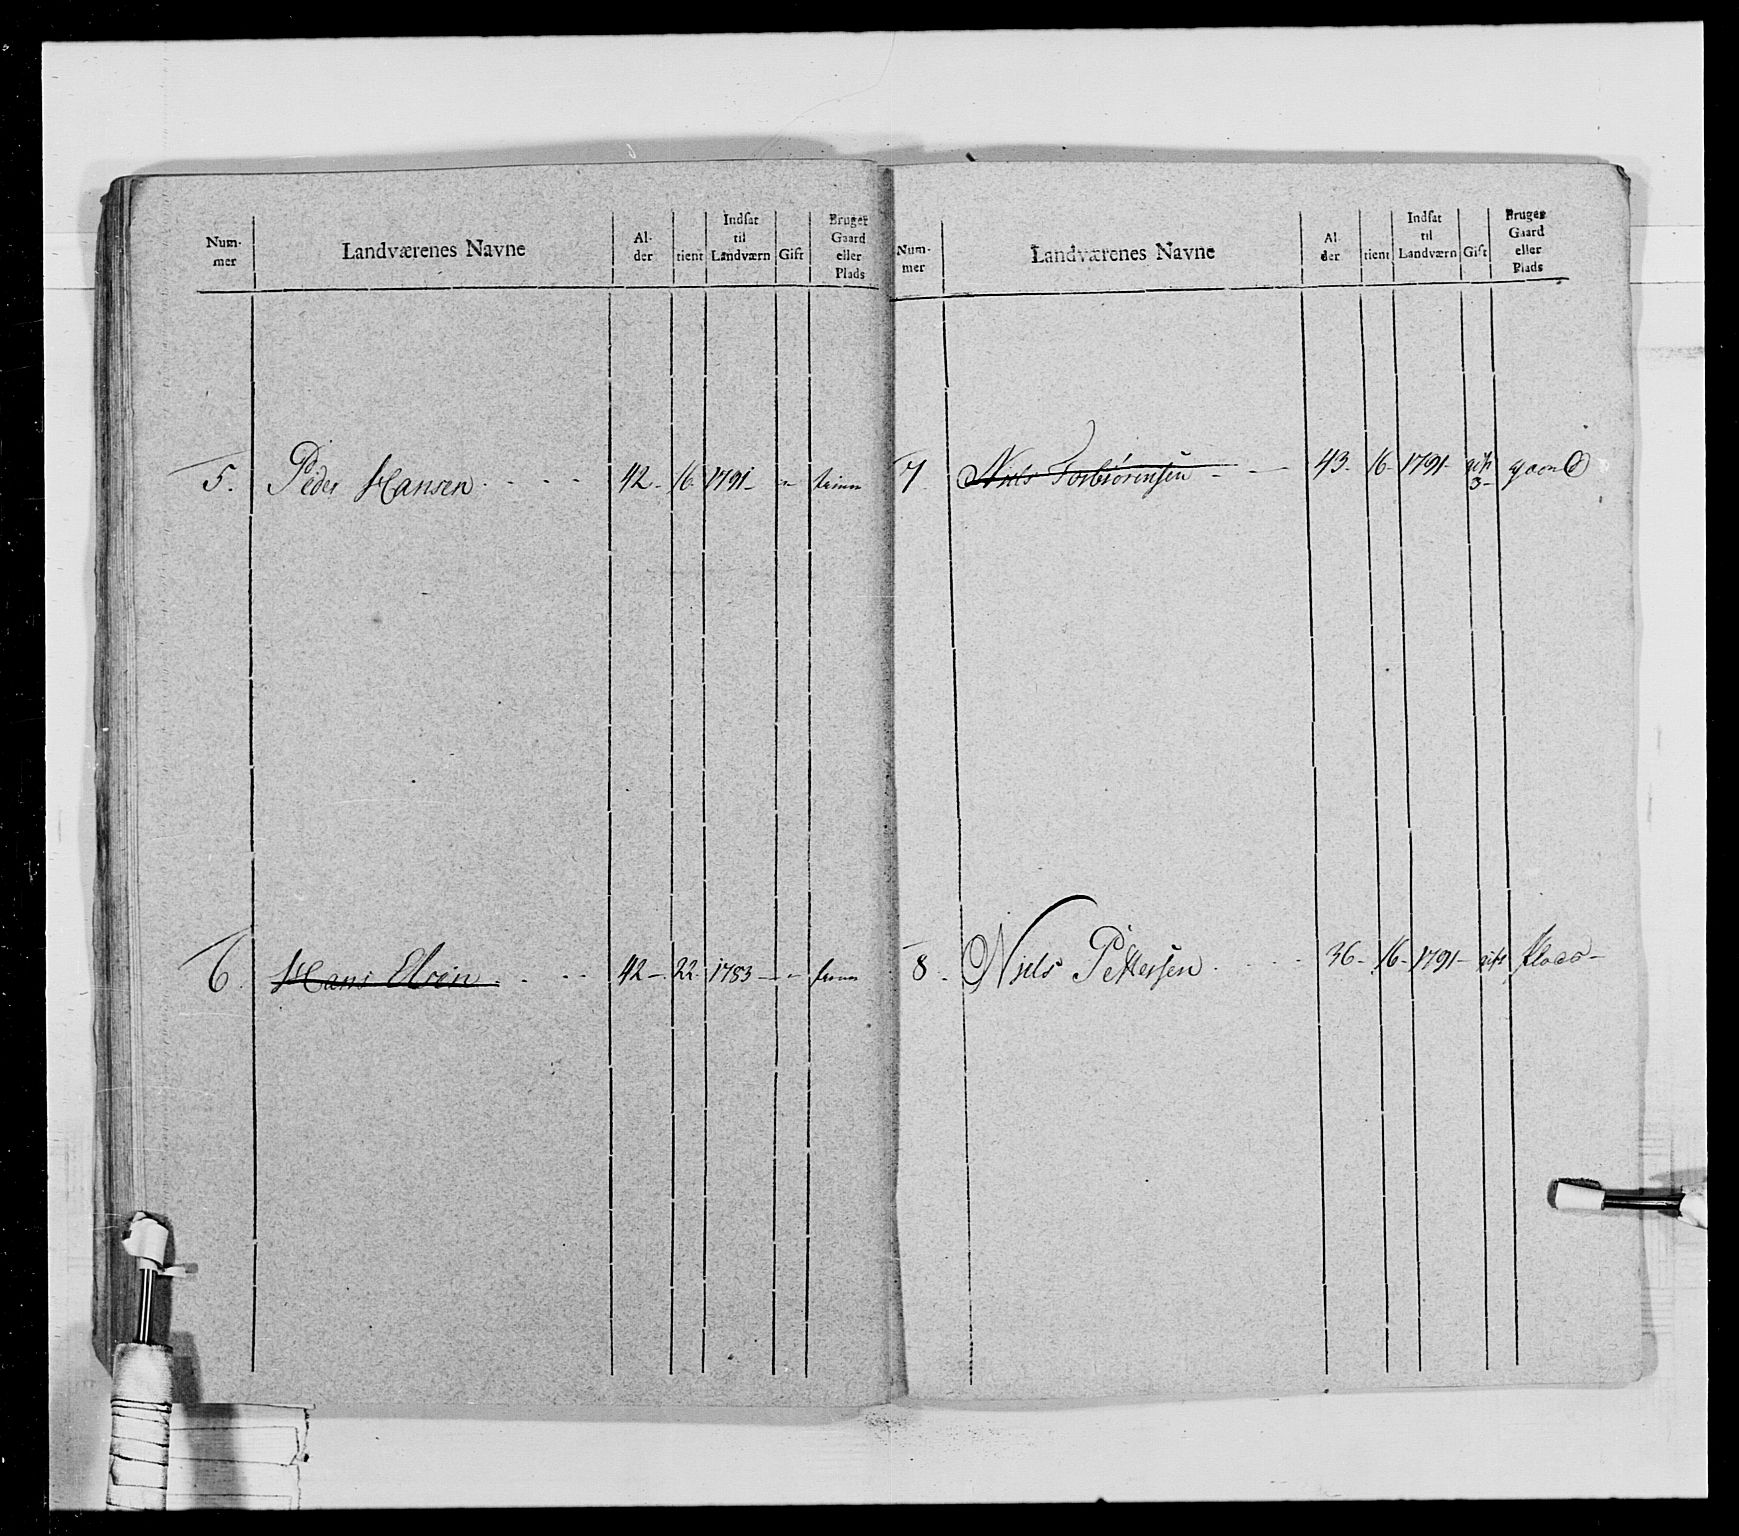 Num-mer | Landværenes Navne | Al-der | tient | Indsat til Landværn | Gift | Bruger Gaard eller Plads
5. Peder Hansen 42 - 16 - 1791 - -"-
6. Hans Olsen 42 - 22 - 1783 - -"-
Num-mer | Landværenes Navne | Al-der | tient | Indsat til Landværn | Gift | Bruger Gaard eller Plads
7. Niels Torbiörensen - 43 - 16 - 1791 - gift 3 - gaard
8. Niels Pettersen 36 - 16 - 1791 - gift plads -